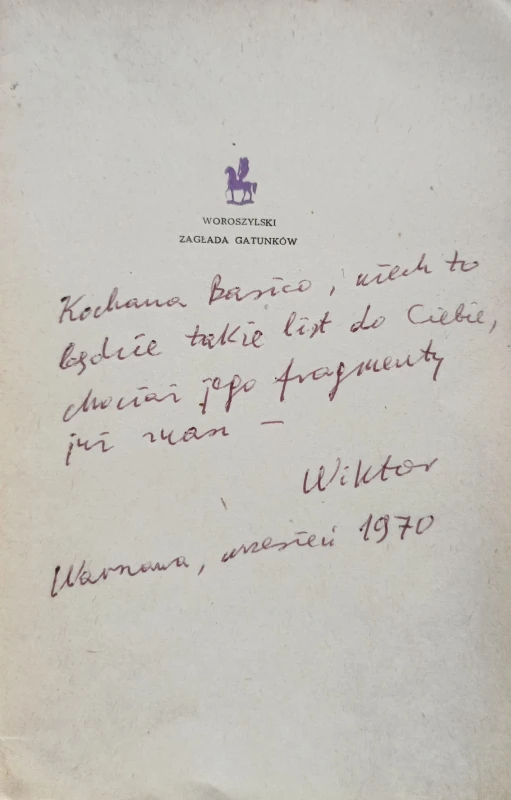 WOROSZYLSKI
ZAGŁADA GATUNKÓW
Kochana Basieo, niech to
będzie także list do Ciebie,
chociaż jego fragmenty
już znasz –
Wiktor
Warszawa, wrzesień 1970